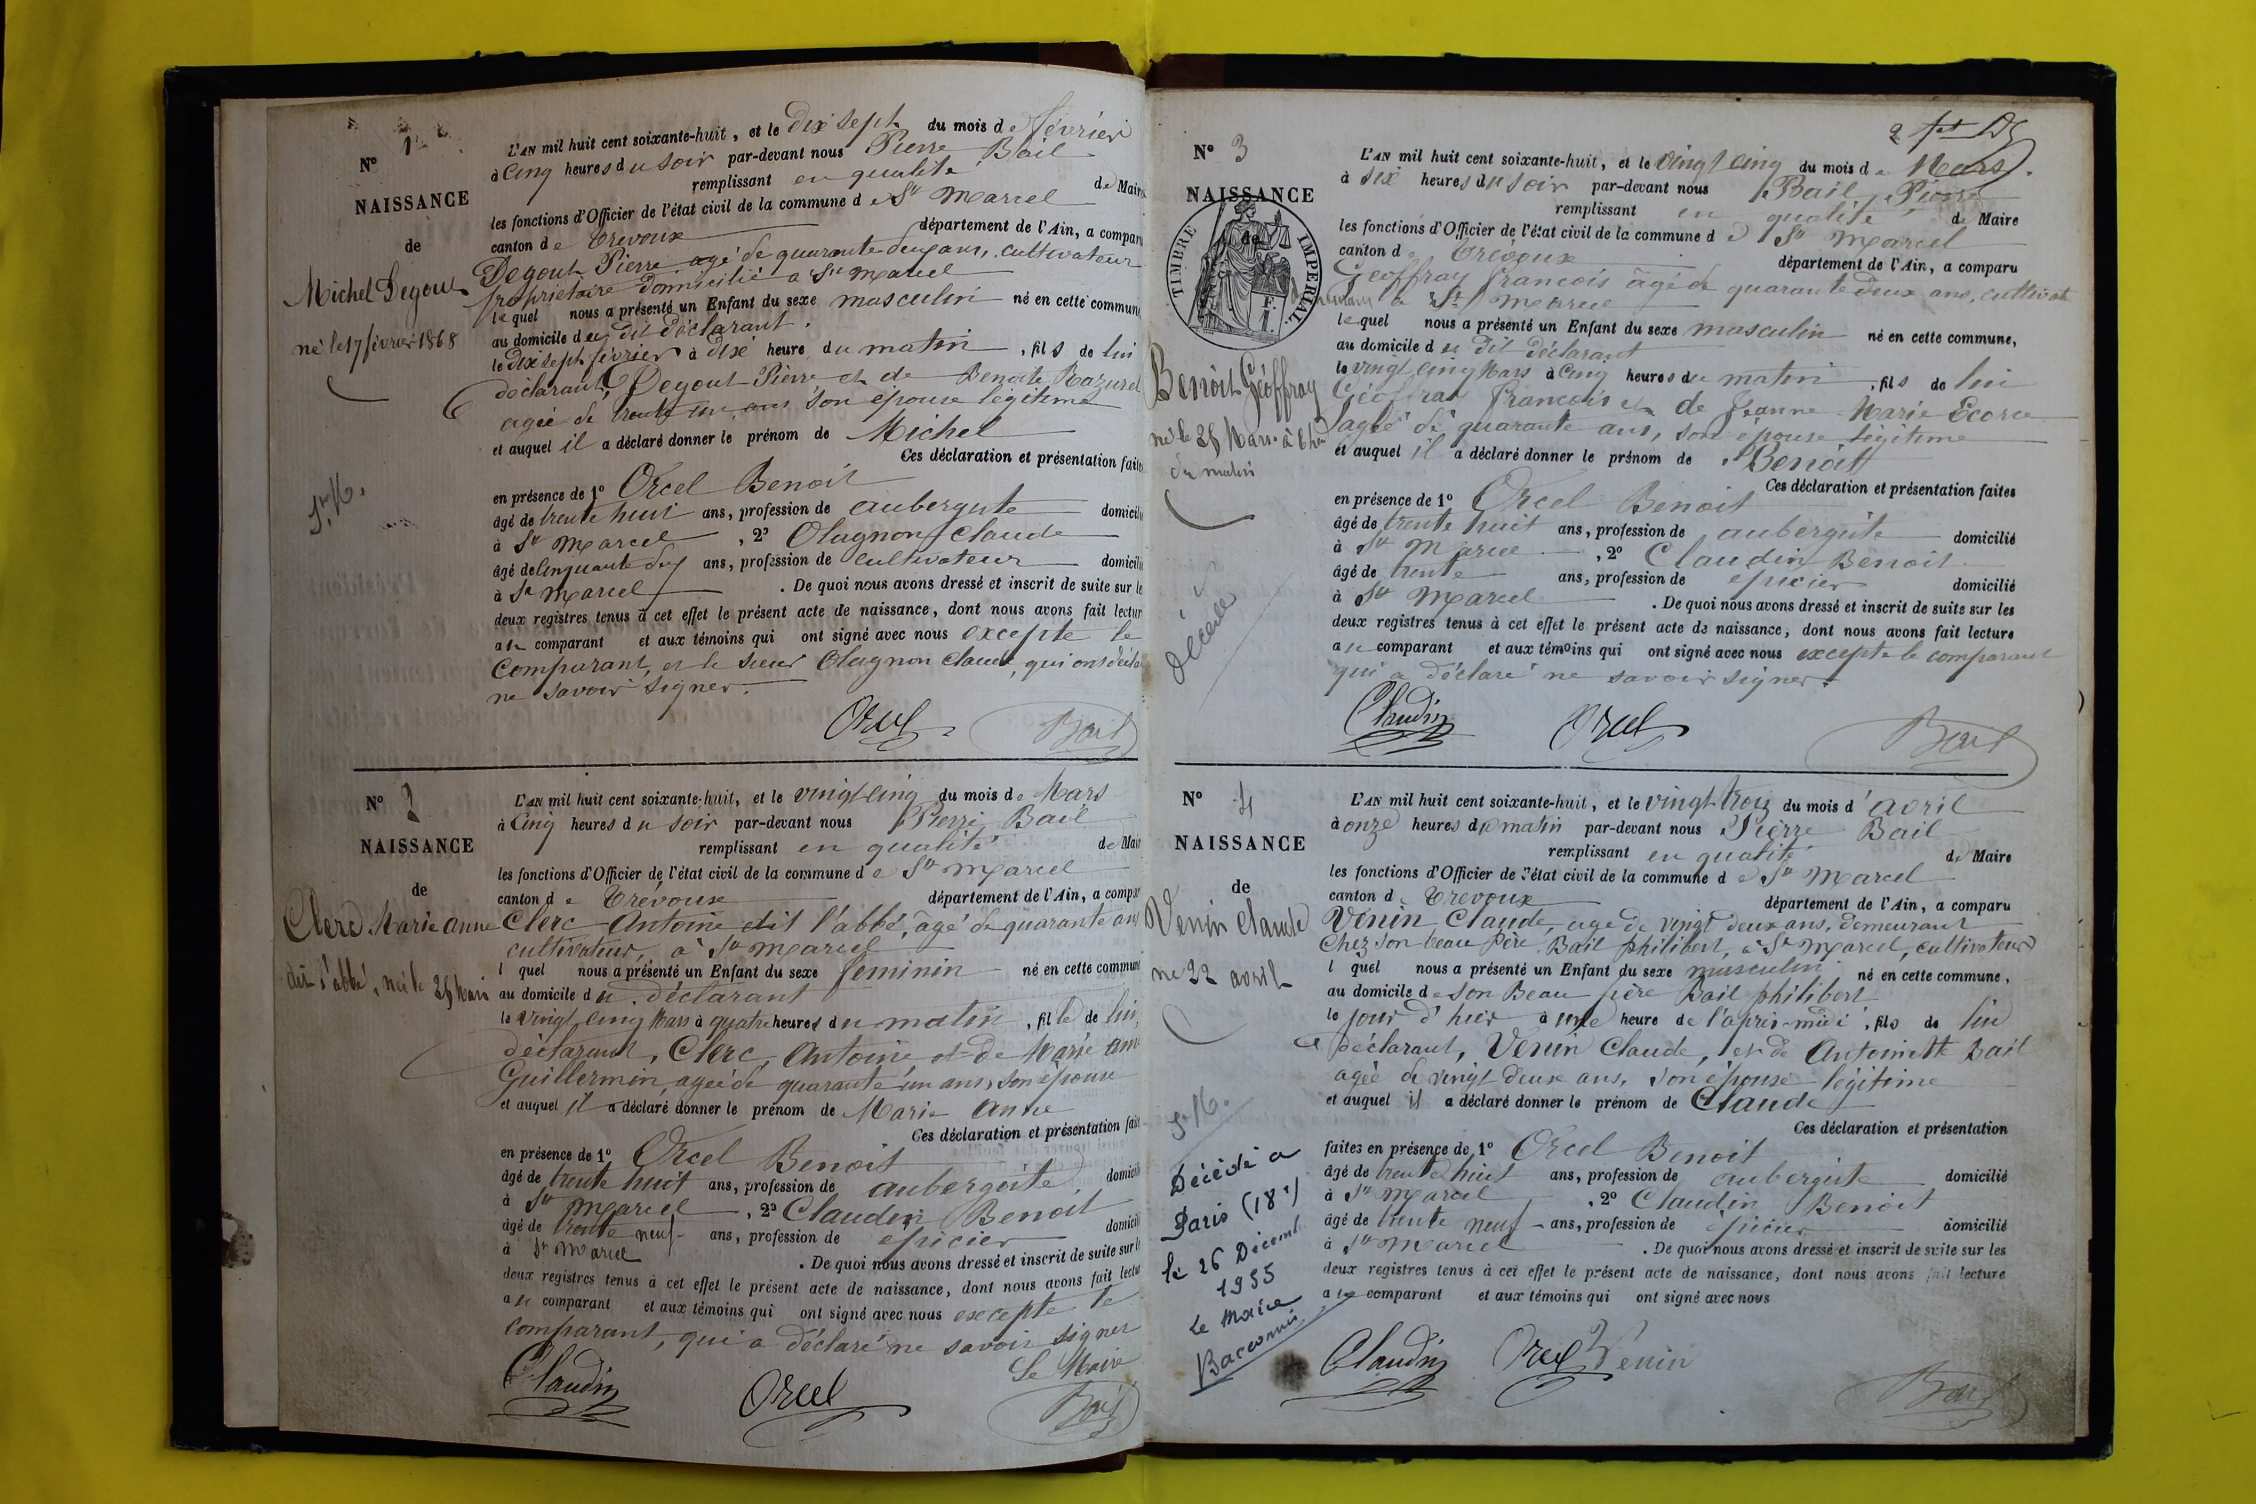 N° 1
NAISSANCE
de
Michel Degout
né le 17 février 1868
St. M.
L'AN mil huit cent soixante-huit, et le dix sept du mois de février
à Cinq heures du soir par-devant nous Pierre Bail
remplissant en qualité de Maire
les fonctions d'Officier de l'état civil de la commune de St Marcel
canton de Trévoux département de l'Ain, a comparu
Degout Pierre agé de quarante deux ans, cultivateur
propriétaire domicilié a St Marcel
lequel nous a présenté un Enfant du sexe masculin né en cette commune
au domicile du dit déclarant.
le dix sept février à dix heure du matin, fils de lui
déclarant, Degout Pierre et de Benoite Razurel
agée de trente un ans son épouse légitime
et auquel il a déclaré donner le prénom de Michel
Ces déclaration et présentation faites
en présence de 1° Orcel Benoit
âgé de trente huit ans, profession de aubergiste domicilié
à St Marcel, 2° Olagnon Claude
âgé de Cinquante deux ans, profession de Cultivateur domicilié
à St Marcel. De quoi nous avons dressé et inscrit de suite sur le
deux registres tenus à cet effet le présent acte de naissance, dont nous avons fait lectur
au comparant et aux témoins qui ont signé avec nous excepté le
Comparant, et le sieur Olagnon Claude, qui ont décla
ne savoir signer.
Orcel Bail
N° 2
NAISSANCE
de
Clerc Marie anne
dit l'abbé, née le 25 Mars
L'AN mil huit cent soixante-huit, et le vingt cinq du mois de Mars
à Cinq heures du soir par-devant nous Pierre Bail
remplissant en qualité de Maire
les fonctions d'Officier de l'état civil de la commune de St Marcel
canton de Trévoux département de l'Ain, a compar
Clerc Antoine dit l'abbé, âgé de quarante ans
cultivateur, à St Marcel
l quel nous a présenté un Enfant du sexe féminin né en cette commune
au domicile du déclarant
le vingt cinq Mars à quatre heures du matin, fille de lui,
déclarant, Clerc, Antoine et de Marie anne
Guillermin, agée de quarante un ans, son épouse
et auquel il a déclaré donner le prénom de Marie Anne
Ces déclaration et présentation fait
en présence de 1° Orcel Benoit
âgé de trente huit ans, profession de aubergiste domicili
à St Marcel, 2° Claudin Benoit
âgé de trente neuf ans, profession de épicier domicili
à St Marcel. De quoi nous avons dressé et inscrit de suite sur le
deux registres tenus à cet effet le présent acte de naissance, dont nous avons fait lectur
au comparant et aux témoins qui ont signé avec nous excepté le
comparant, qui a déclaré ne savoir signer
Le Maire
Claudin Orcel Bail
N° 3
NAISSANCE
de
TIMBRE IMPERIAL
Benoit Géoffray
né le 25 Mars à 5 h
du matin
décédé
L'AN mil huit cent soixante-huit, et le vingt cinq du mois de Mars.
à six heures du soir par-devant nous Bail, Pierre
remplissant en qualité de Maire
les fonctions d'Officier de l'état civil de la commune de St Marcel
canton de Trévoux département de l'Ain, a comparu
Geoffray francois âgé de quarante deux ans, cultivat
demeurant a St Marcel
lequel nous a présenté un Enfant du sexe masculin né en cette commune,
au domicile du dit déclarant
le vingt cinq Mars à Cinq heures du matin, fils de lui
Géoffray francois et de Jeanne Marie Ecorce
agée de quarante ans, son épouse légitime
et auquel il a déclaré donner le prénom de Benoit
Ces déclaration et présentation faites
en présence de 1° Orcel Benoit
âgé de trente huit ans, profession de aubergiste domicilié
à St Marcel, 2° Claudin Benoit
âgé de trente ans, profession de épicier domicilié
à St Marcel. De quoi nous avons dressé et inscrit de suite sur les
deux registres tenus à cet effet le présent acte de naissance, dont nous avons fait lecture
au comparant et aux témoins qui ont signé avec nous excepté le comparant
qui a déclaré ne savoir signer.
Claudin Orcel Bail
N° 4
NAISSANCE
de
Venin Claude
né 22 avril
St. M.
Décédé a
Paris (18e)
le 26 Décemb
1955
Le Maire
L'AN mil huit cent soixante-huit, et le vingt trois du mois d'avril
à onze heures du matin par-devant nous Pierre Bail
remplissant en qualité de Maire
les fonctions d'Officier de l'état civil de la commune de St Marcel
canton de Trévoux département de l'Ain, a comparu
Venin Claude, agé de vingt deux ans, demeurant
Chez son beau père Bail philibert, à St Marcel, cultivateur
l quel nous a présenté un Enfant du sexe masculin né en cette commune,
au domicile de son Beau père Bail philibert
le jour d'hier à une heure de l'après-midi, fils de lui
déclarant, Venin Claude, et de Antoinette Bail
agée de vingt deux ans, son épouse légitime
et auquel il a déclaré donner le prénom de Claude
Ces déclaration et présentation
faites en présence de 1° Orcel Benoit
âgé de trente huit ans, profession de aubergiste domicilié
à St Marcel, 2° Claudin Benoit
âgé de trente neuf ans, profession de épicier domicilié
à St Marcel. De quoi nous avons dressé et inscrit de suite sur les
deux registres tenus à cet effet le présent acte de naissance, dont nous avons fait lecture
au comparant et aux témoins qui ont signé avec nous
Claudin Orcel Venin
Bail